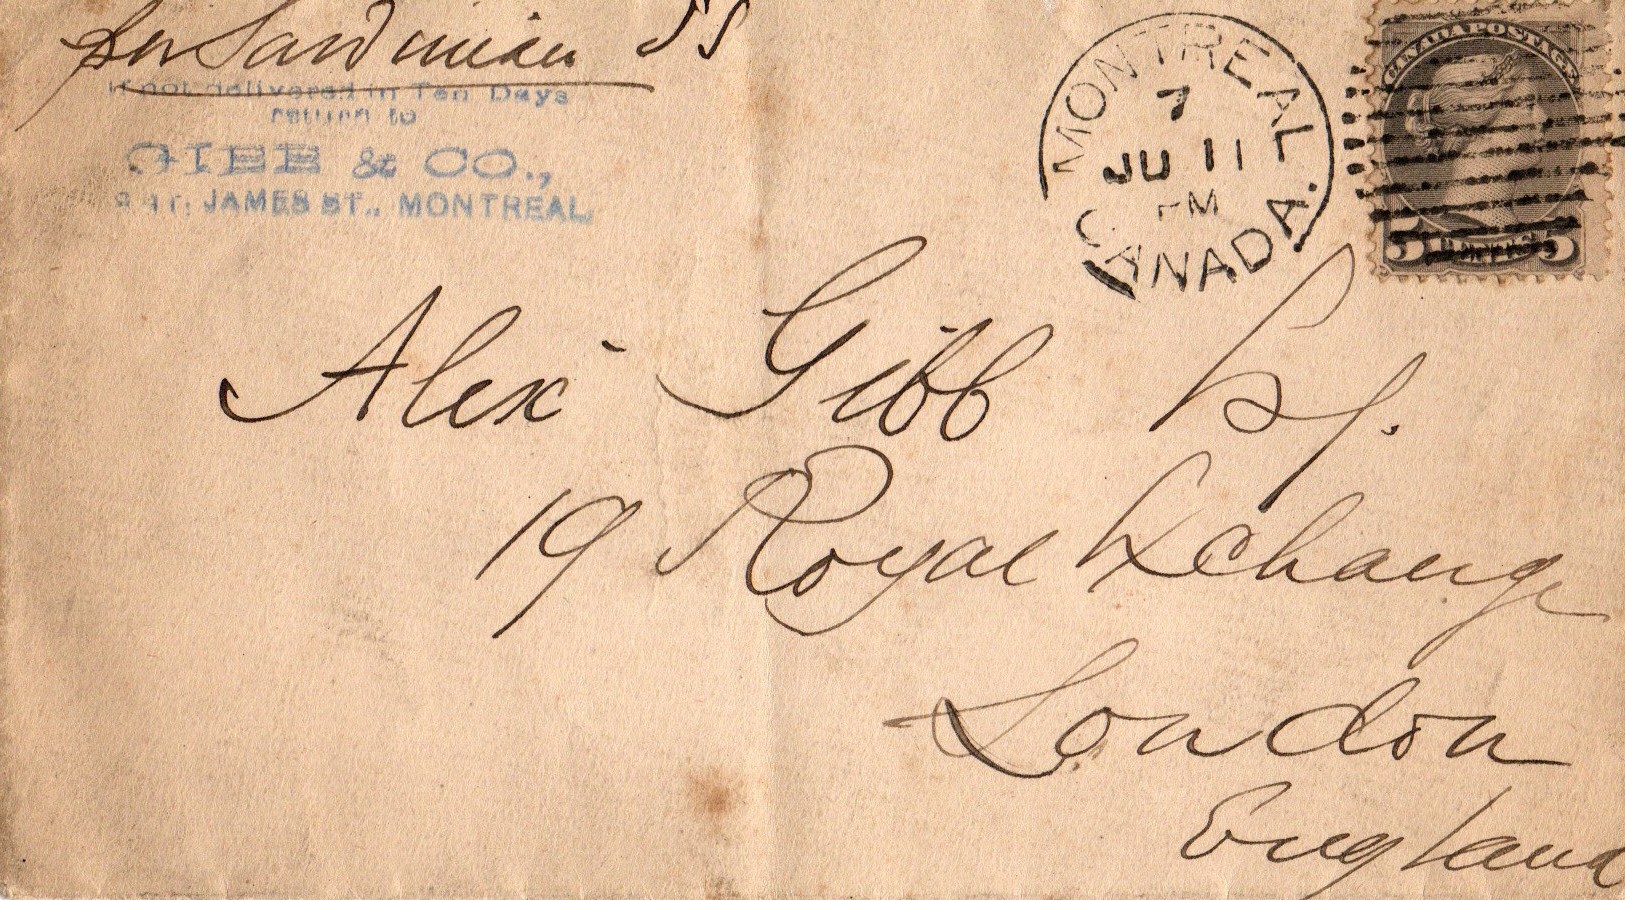 per Sardinian SS
If not delivered in Ten Days
return to
GIBB & CO.,
ST. JAMES ST., MONTREAL,
MONTREAL
7
JU 11
PM
CANADA.
CANADA POSTAGE
5 CENTS 5
Alexr Gibb Esq.
19 Royal Exchange
London
England